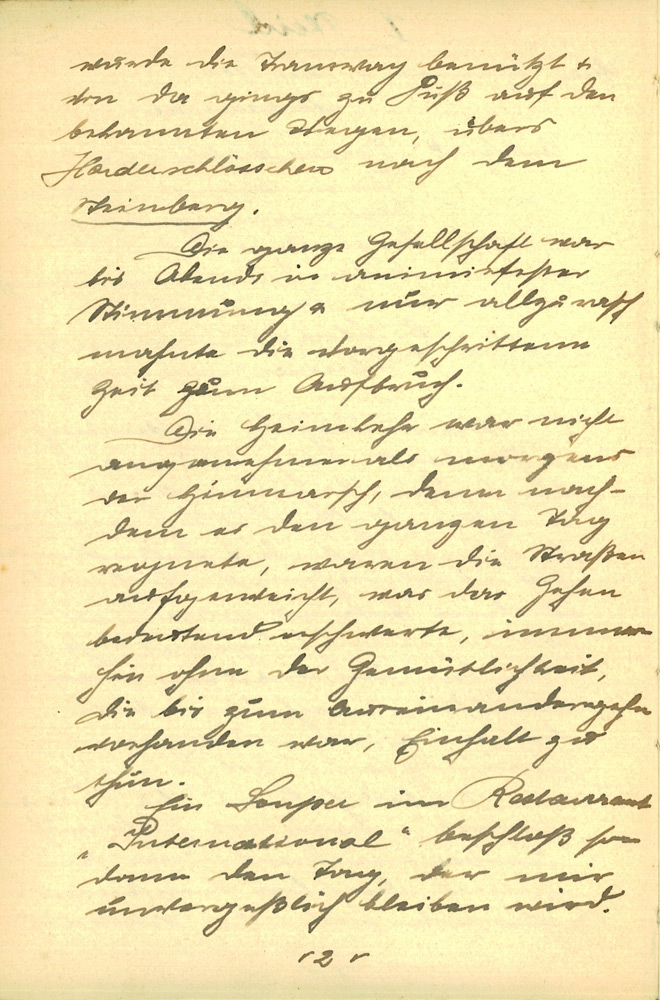 wurde die Tramway benützt &
von da gings zu Fuß auf den
bekannten Wegen, übers
Häuserschlösschen nach dem
Steinberg.
Die ganze Gesellschaft war
bis Abends in animirtester
Stimmung & nur allzurasch
mahnte die vorgeschrittene
Zeit zum Aufbruch.
Die Heimkehr war nicht
angenehmer als morgens
der Hinmarsch, denn nach-
dem es den ganzen Tag
regnete, waren die Straßen
aufgeweicht, was das Gehen
bedeutend erschwerte, immer
hin ohne der Gemütlichkeit,
die bis zum Auseinandergehn
vorhanden war, Einhalt zu
thun.
Ein Souper im Restaurant
„International" beschloß so
dann den Tag, der mir
unvergeßlich bleiben wird.
2